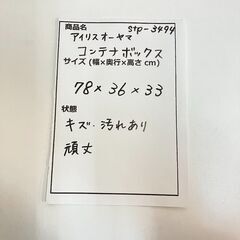 商品名 stp-3494
アイリスオーヤマ
コンテナボックス
サイズ(幅×奥行×高さ cm)
78×36×33
状態
キズ・汚れあり
頑丈